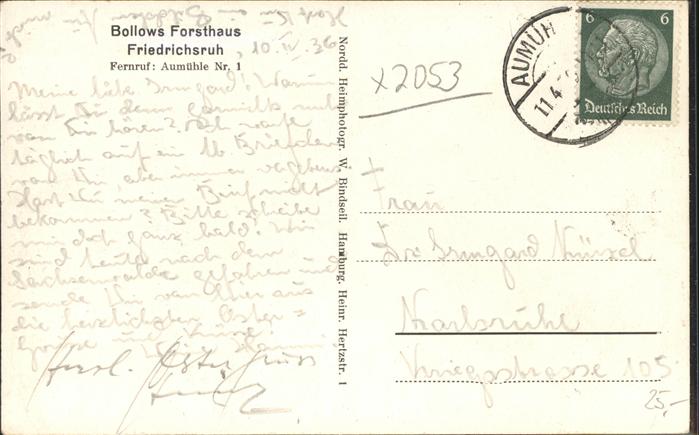 Bollows Forsthaus
Friedrichsruh
Fernruf: Aumühle Nr. 1
10. IV. 36
Meine liebe Irmgard! Warum
lässt Du denn garnichts mehr
von Dir hören? Ich warte
täglich auf ein lb. Briefchen
von Dir, aber immer vergebens.
Hast Du meinen Brief nicht
bekommen? Bitte schreibe
mir doch ganz bald! Wir
sind heute nach dem
Sachsenwalde gefahren und
sende Dir von hier aus
die herzlichsten Oster-
grüsse und Küsse
Herzl. Ostergruss
Nordd. Heimphotogr. W. Bindseil. Hamburg. Heinr. Hertzstr. 1
x2053
AUMÜH
11.4
6 6
Deutsches Reich
Frau
Irmgard Künzel
Karlsruhe
Kriegsstrasse 105
25,-